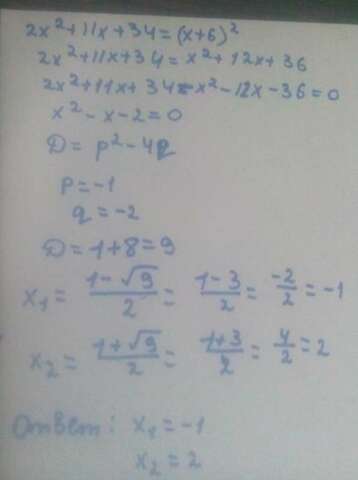 2x²+11x+34=(x+6)²
2x²+11x+34=x²+12x+36
2x²+11x+34-x²-12x-36=0
x²-x-2=0
D=p²-4q
p=-1
q=-2
D=1+8=9
x₁= (1-√9)/2 = (1-3)/2 = -2/2 = -1
x₂= (1+√9)/2 = (1+3)/2 = 4/2 = 2
Ответ: x₁=-1
x₂=2